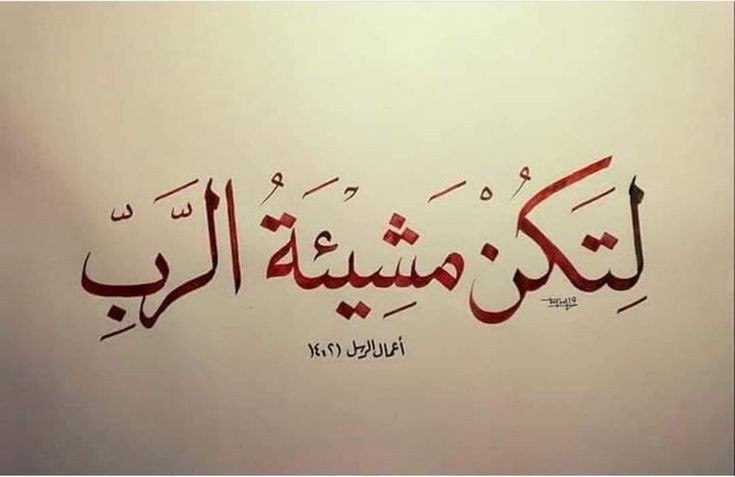 لِتَكُنْ مَشِيْئَةُ الرَّبِّ
أعمال الرسل ١٤:٢١